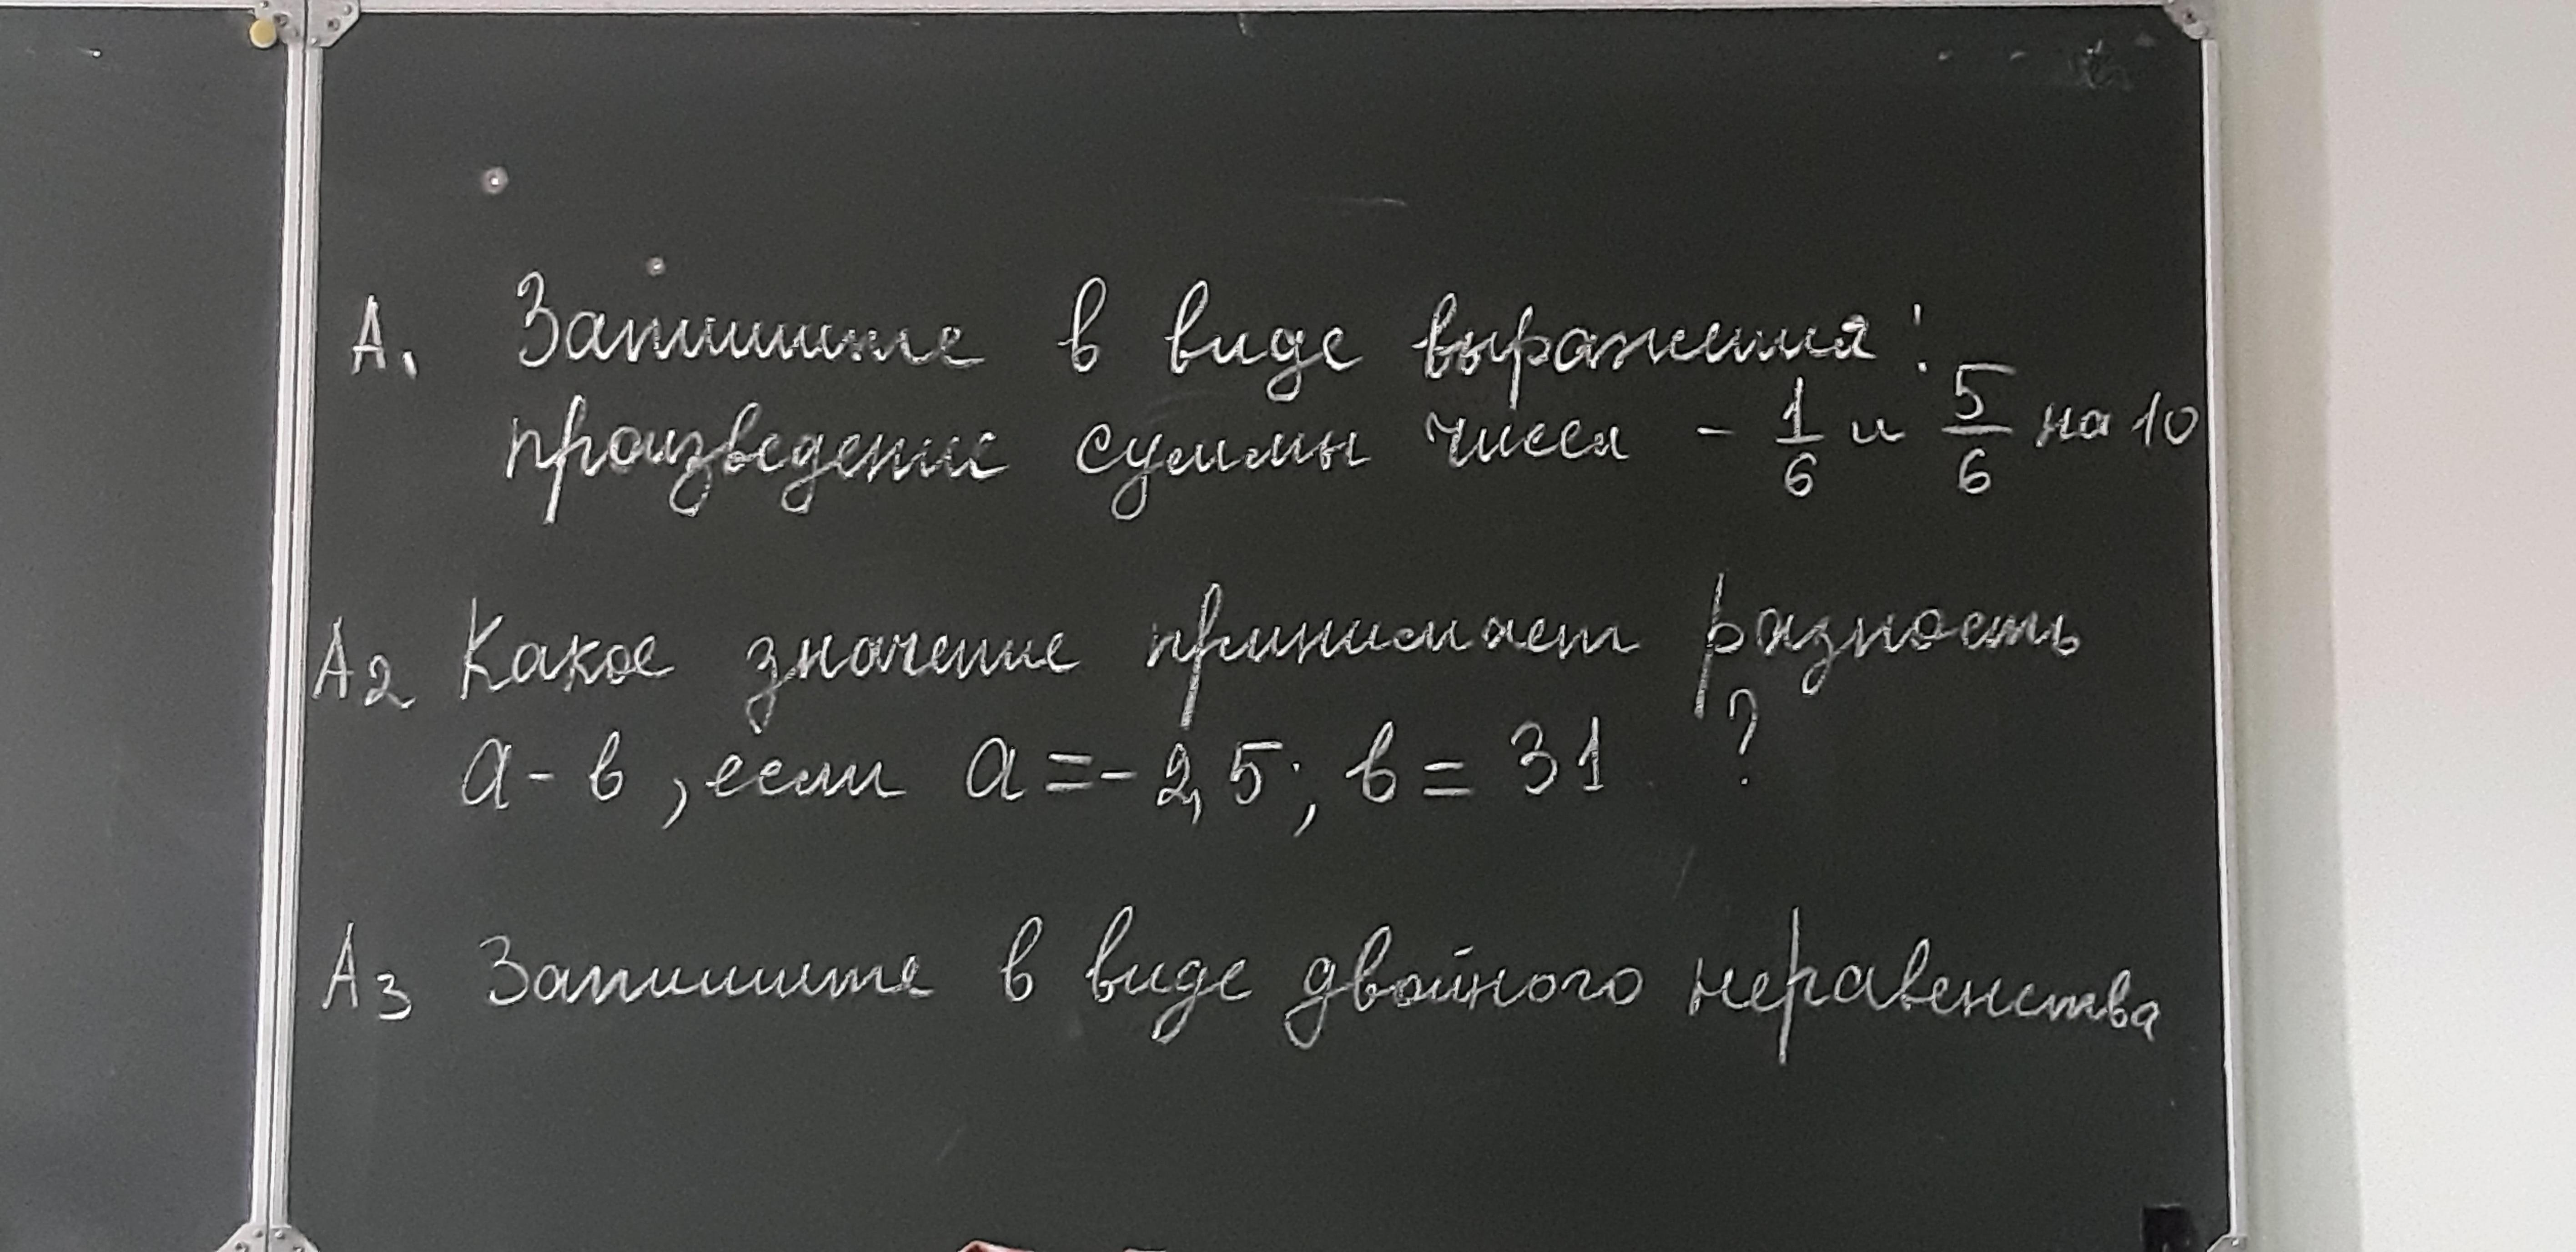 А1 Запишите в виде выражения:
произведение суммы чисел - 1/6 и 5/6 на 10
А2 Какое значение принимает разность
а - в, если а = - 2,5; в = 31 ?
А3 Запишите в виде двойного неравенства